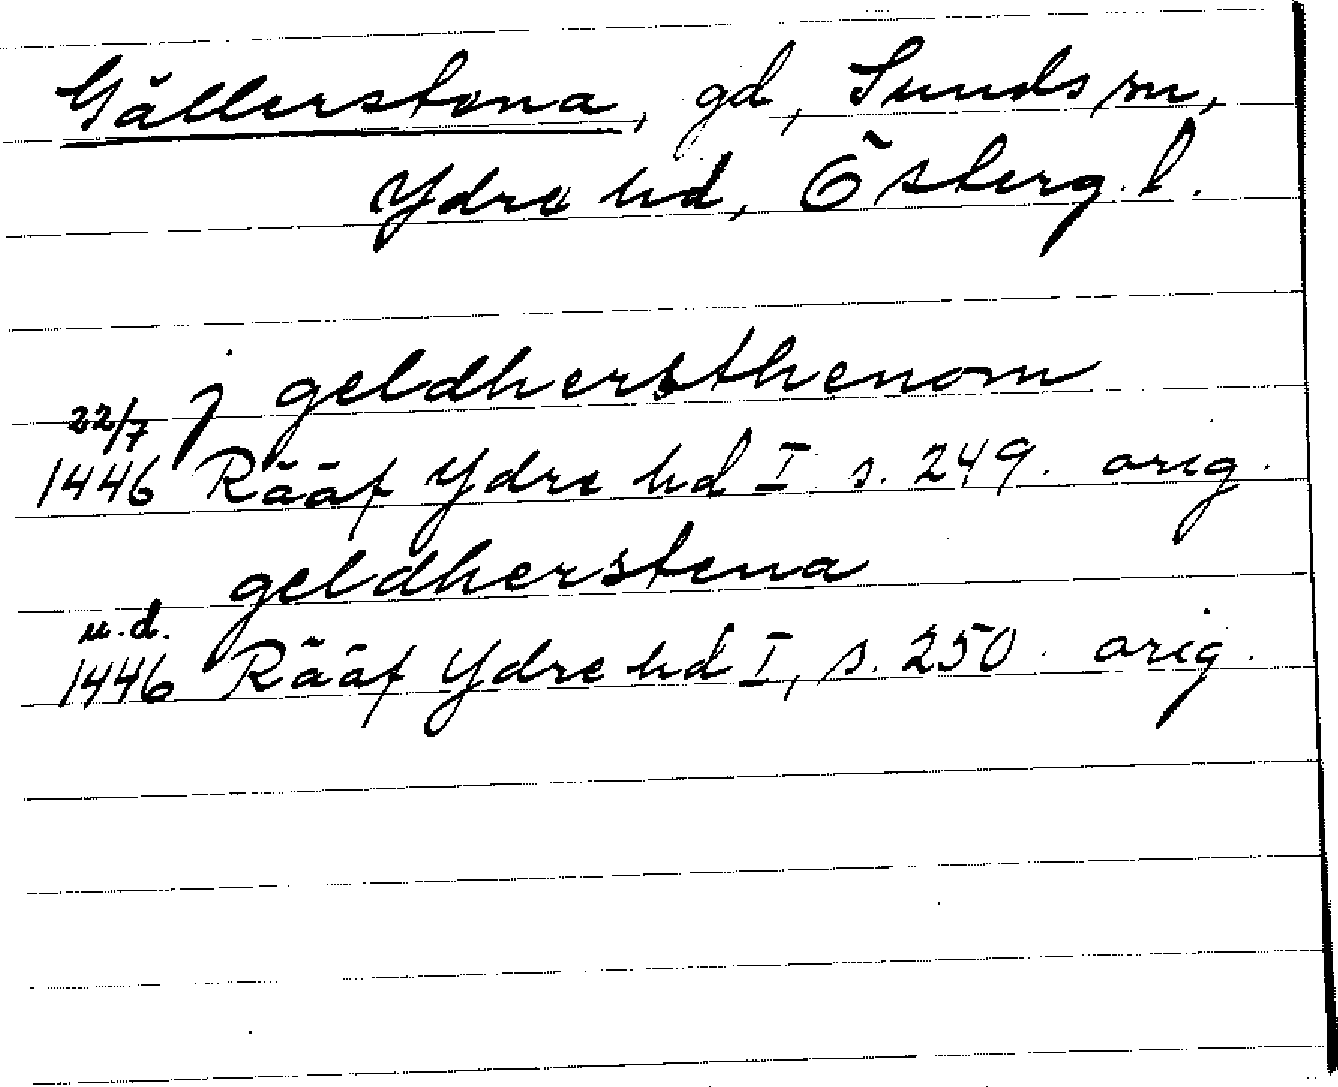 Gällerstena, gd, Sunds sn,
Ydre hd, Österg. l.
22/7 j geldhersthenom
1446 Rääf Ydre hd I s. 249. orig.
geldherstena
u.d.
1446 Rääf Ydre hd I, s. 250. orig.